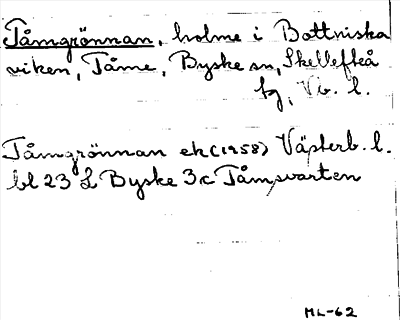 Tåmgrönnan, holme i Bottniska
viken, Tåme, Byske sn, Skellefteå
tg, Vb. l.
Tåmgrönnan ek (1958) Västerb. l.
bl 23 L Byske 3c Tåmsvarten
ML-62